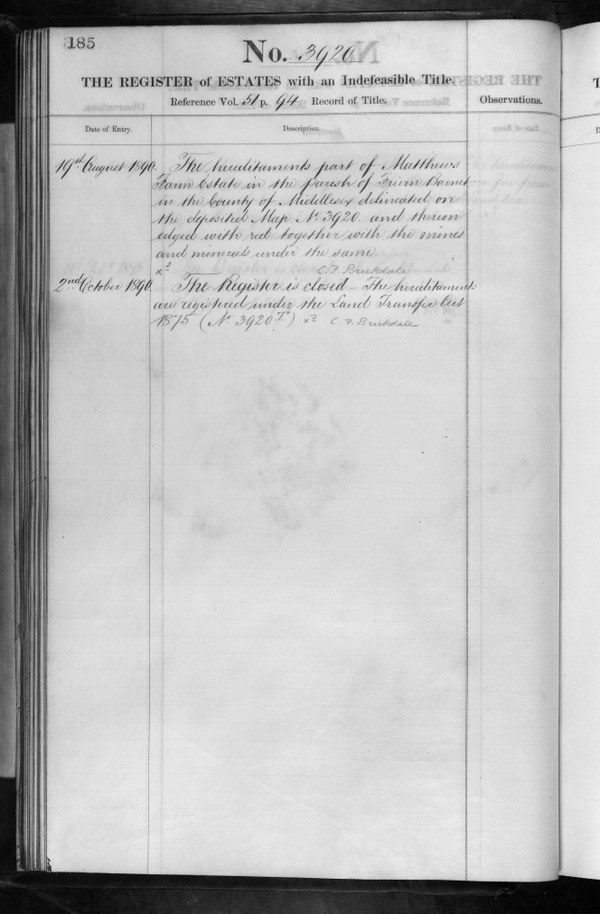 185
No. 3920
THE REGISTER of ESTATES with an Indefeasible Title.
Reference Vol. 51 p. 94 Record of Title.
Observations.
Date of Entry.
Description.
19th August 1890.
The hereditaments part of Matthews
Farm Estate in the parish of Friern Barnet
in the County of Middlesex delineated on
the deposited Map No. 3920 and thereon
edged with red together with the mines
and minerals under the same.
C. F. Brickdale
2nd October 1890.
The Register is closed - The hereditaments
are registered under the Land Transfer Act
1875 (No. 3920 T) C. F. Brickdale